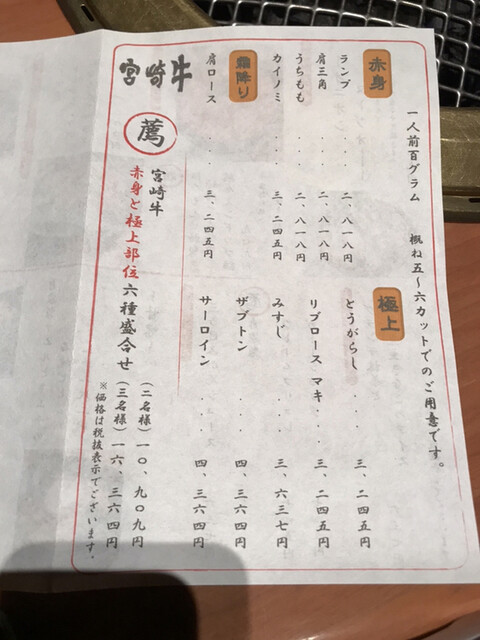 一人前百グラム 概ね五～六カットでのご用意です。
赤身
ランプ ・・・ 二、八一八円
肩三角 ・・・ 二、八一八円
うちもも ・・・ 二、八一八円
カイノミ ・・・ 三、二四五円
霜降り
肩ロース ・・・ 三、二四五円
極上
とうがらし ・・・ 三、二四五円
リブロース マキ ・・・ 三、二四五円
みすじ ・・・ 三、六三七円
ザブトン ・・・ 四、三六四円
サーロイン ・・・ 四、三六四円
宮崎牛
薦
宮崎牛
赤身と極上部位 六種盛合せ
(二名様) 一〇、九〇九円
(三名様) 一六、三六四円
※価格は税抜表示でございます。